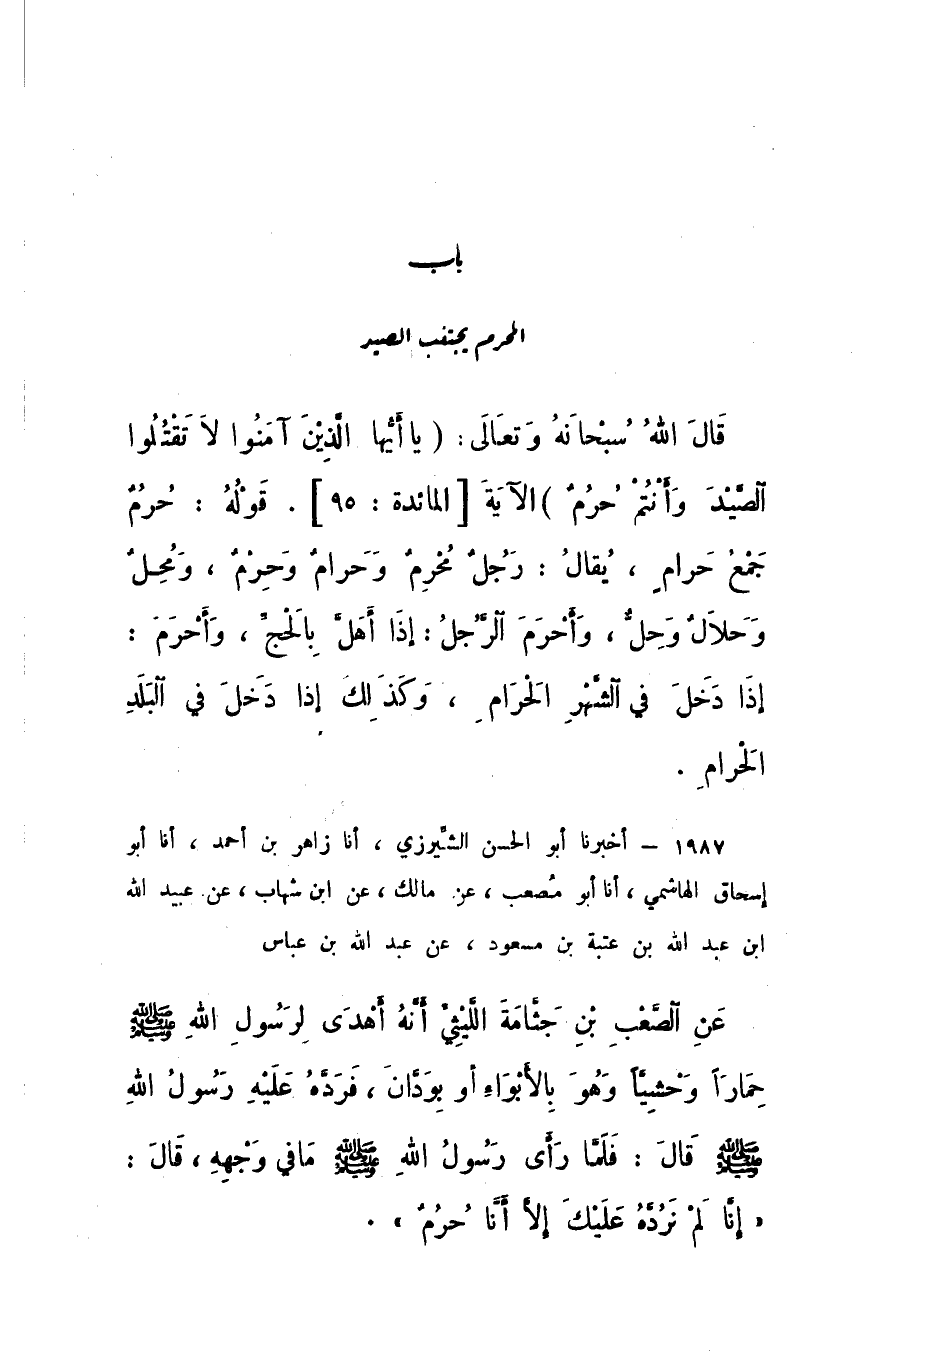 باب
المحرم يجتنب الصيد
قَالَ اللهُ سُبْحَانَهُ وَتَعَالَى : ( يا أَيُّها الَّذِيْنَ آمَنُوا لاَ تَقْتُلُوا
الصَّيْدَ وَأَنْتُمْ حُرُمٌ ) الآيَةَ [ المائدة : ٩٥ ] . قَوْلُهُ : حُرُمٌ
جَمْعُ حَرامٍ ، يُقالُ : رَجُلٌ مُحْرِمٌ وَحَرامٌ وَحِرْمٌ ، وَمُحِلٌّ
وَحَلاَلٌ وَحِلٌّ ، وَأَحْرَمَ الرَّجُلُ : إِذَا أَهَلَّ بِالْحَجِّ ، وَأَحْرَمَ :
إِذَا دَخَلَ في الشَّهْرِ الحْرَامِ ، وَكَذَلِكَ إذا دَخَلَ في البَلَدِ
الحْرامِ .
١٩٨٧ – أخبرنا أبو الحسن الشّيرزي ، أنا زاهر بن أحمد ، أنا أبو
إسحاق الهاشمي ، أنا أبو مُصعب ، عن مالك ، عن ابن شهاب ، عن عبيد الله
ابن عبد الله بن عتبة بن مسعود ، عن عبد الله بن عباس
عَنِ الصَّعْبِ بْنِ جَثَّامَةَ اللَّيْثِيِّ أَنَّهُ أَهْدَى لِرَسُولِ اللهِ ﷺ
حِمَارَاً وَحْشِيَّاً وَهُوَ بِالأَبْوَاءِ أو بِوَدَّانَ ، فَرَدَّهُ عَلَيْهِ رَسُولُ اللهِ
ﷺ قَالَ : فَلَمَّا رَأَى رَسُولُ اللهِ ﷺ مَافي وَجْهِهِ ، قَالَ :
« إِنَّا لَمْ نَرُدَّهُ عَلَيْكَ إلاَّ أَنَّا حُرُمٌ » .